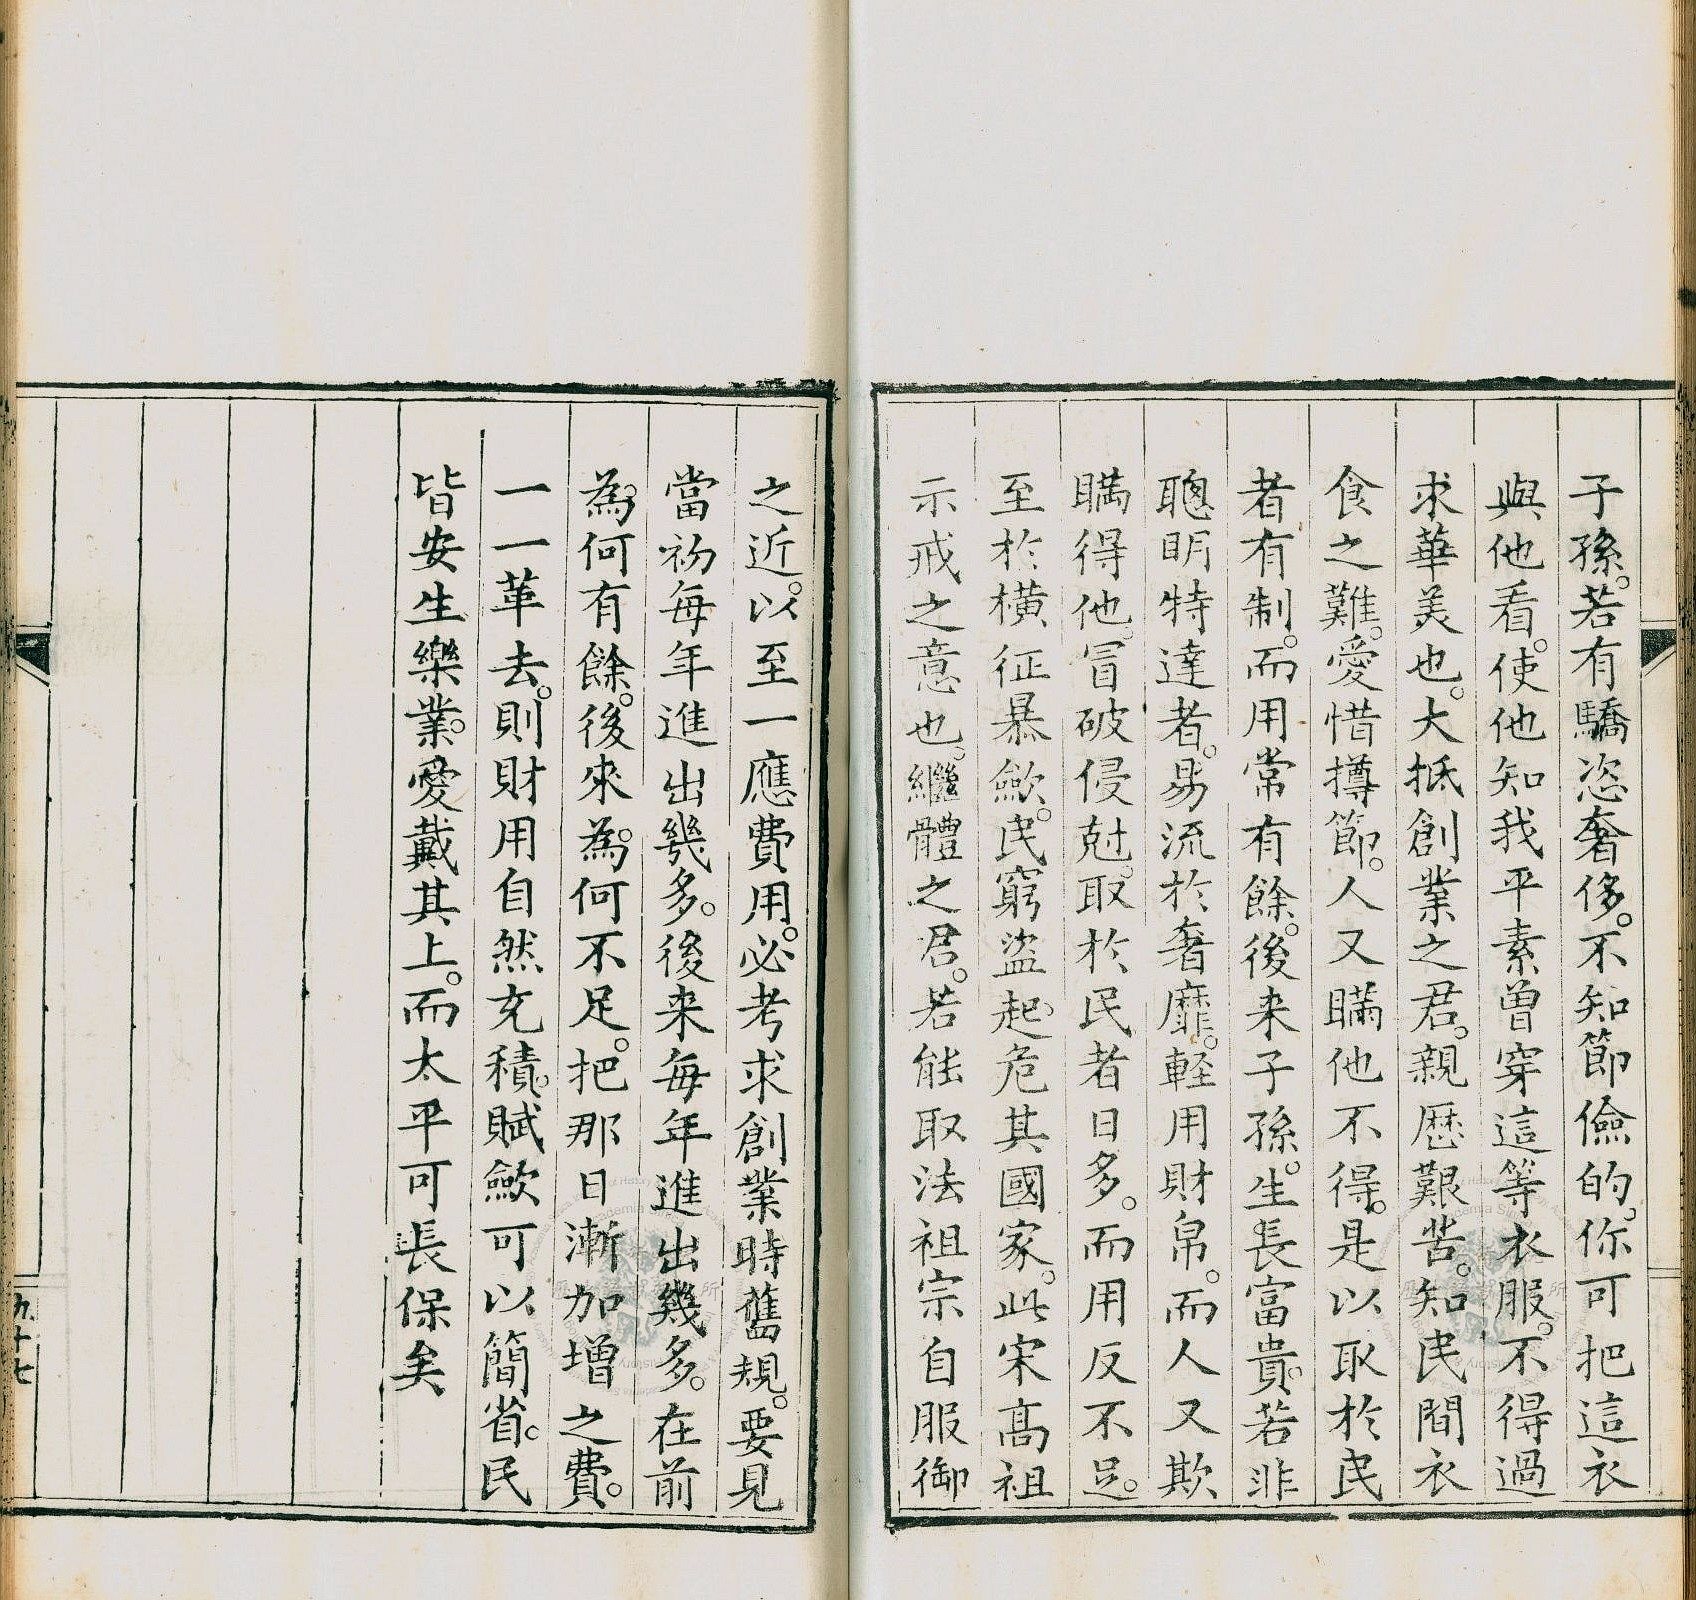 子孫。若有驕恣奢侈。不知節儉的。你可把這衣
與他看。使他知我平素曾穿這等衣服。不得過
求華美也。大抵創業之君。親歷艱苦。知民間衣
食之難。愛惜撙節。人又瞞他不得。是以取於民
者有制。而用常有餘。後来子孫。生長富貴。若非
聰明特達者。易流於奢靡。輕用財帛。而人又欺
瞞得他。冒破侵尅。取於民者日多。而用反不足。
至於橫征暴斂。民窮盜起。危其國家。此宋高祖
示戒之意也。繼體之君。若能取法祖宗自服御
之近。以至一應費用。必考求創業時舊規。要見
當初每年進出幾多。後来每年進出幾多。在前
為何有餘。後來為何不足。把那日漸加增之費。
一一革去。則財用自然充積。賦斂可以簡省。民
皆安生樂業。愛戴其上。而太平可長保矣
九十七